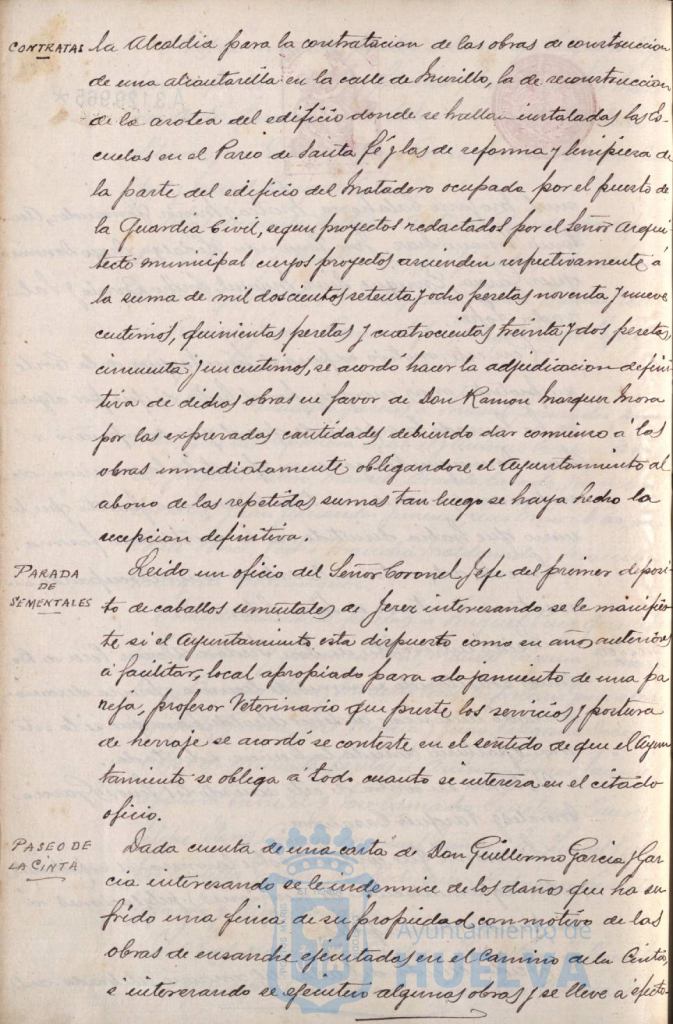 CONTRATAS
la Alcaldia para la contratacion de las obras de construccion
de una alcantarilla en la calle de Murillo, la de reconstruccion
de la azotea del edificio donde se hallan instaladas las Es-
cuelas en el Paseo de Santa Fé y las de reforma y limpieza de
la parte del edificio del Matadero ocupada por el puesto de
la Guardia Civil, segun proyectos redactados por el Señor Arqui-
tecto municipal cuyos proyectos ascienden respectivamente á
la suma de mil doscientos setenta y ocho pesetas noventa y nueve
centimos, quinientas pesetas y cuatrocientas treinta y dos pesetas,
cincuenta y un centimos, se acordó hacer la adjudicacion defini-
tiva de dichas obras en favor de Don Ramon Marquez Mora
por las expresadas cantidades debiendo dar comienzo á las
obras inmediatamente obligandose el Ayuntamiento al
abono de las repetidas sumas tan luego se haya hecho la
recepcion definitiva.
PARADA
DE
SEMENTALES
Leido un oficio del Señor Coronel Jefe del primer deposi-
to de caballos sementales de Jerez interesando se le manifies-
te si el Ayuntamiento esta dispuesto como en años anteriores
á facilitar, local apropiado para alojamiento de una pa-
reja, profesor Veterinario que preste los servicios y postura
de herraje se acordó se conteste en el sentido de que el Ayun-
tamiento se obliga á todo cuanto se interesa en el citado
oficio.
PASEO DE
LA CINTA
Dada cuenta de una carta de Don Guillermo Garcia y Gar-
cia interesando se le indemnice de los daños que ha su-
frido una finca de su propiedad con motivo de las
obras de ensanche ejecutadas en el Camino de la Cinta,
é interesando se ejecuten algunas obras y se lleve á efecto
Ayuntamiento de
HUELVA